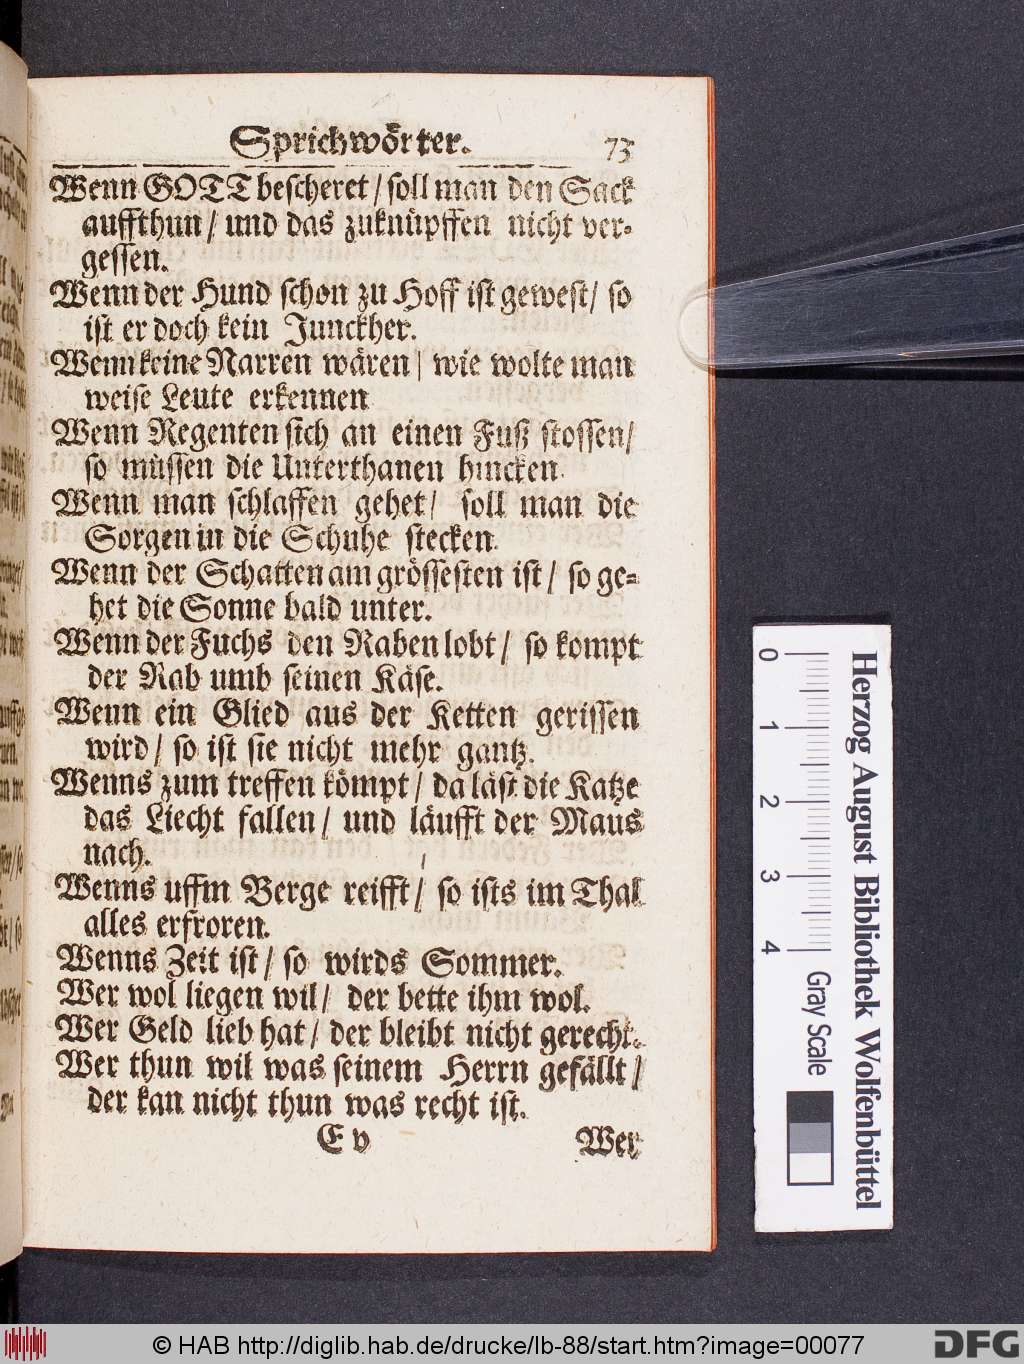 Sprichwörter. 73
Wenn GOTT bescheret / soll man den Sack
auffthun / und das zuknüpffen nicht ver-
gessen.
Wenn der Hund schon zu Hoff ist gewest / so
ist er doch kein Junckher.
Wenn keine Narren wären / wie wolte man
weise Leute erkennen
Wenn Regenten sich an einen Fuß stossen /
so müssen die Unterthanen hincken.
Wenn man schlaffen gehet / soll man die
Sorgen in die Schuhe stecken.
Wenn der Schatten am grössesten ist / so ge-
het die Sonne bald unter.
Wenn der Fuchs den Raben lobt / so kompt
der Rab umb seinen Käse.
Wenn ein Glied aus der Ketten gerissen
wird / so ist sie nicht mehr gantz.
Wenns zum treffen kömpt / da läst die Katze
das Liecht fallen / und läufft der Maus
nach.
Wenns uffm Berge reifft / so ists im Thal
alles erfroren.
Wenns Zeit ist / so wirds Sommer.
Wer wol liegen wil / der bette ihm wol.
Wer Geld lieb hat / der bleibt nicht gerecht.
Wer thun wil was seinem Herrn gefällt /
der kan nicht thun was recht ist.
E v Wer
0 1 2 3 4 Gray Scale
Herzog August Bibliothek Wolfenbüttel
© HAB http://diglib.hab.de/drucke/lb-88/start.htm?image=00077
DFG